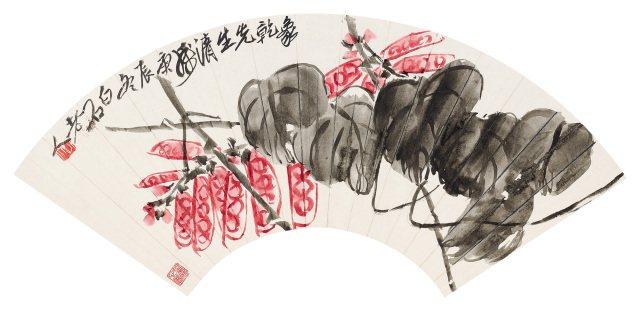 象乾先生清庚辰冬白石老人